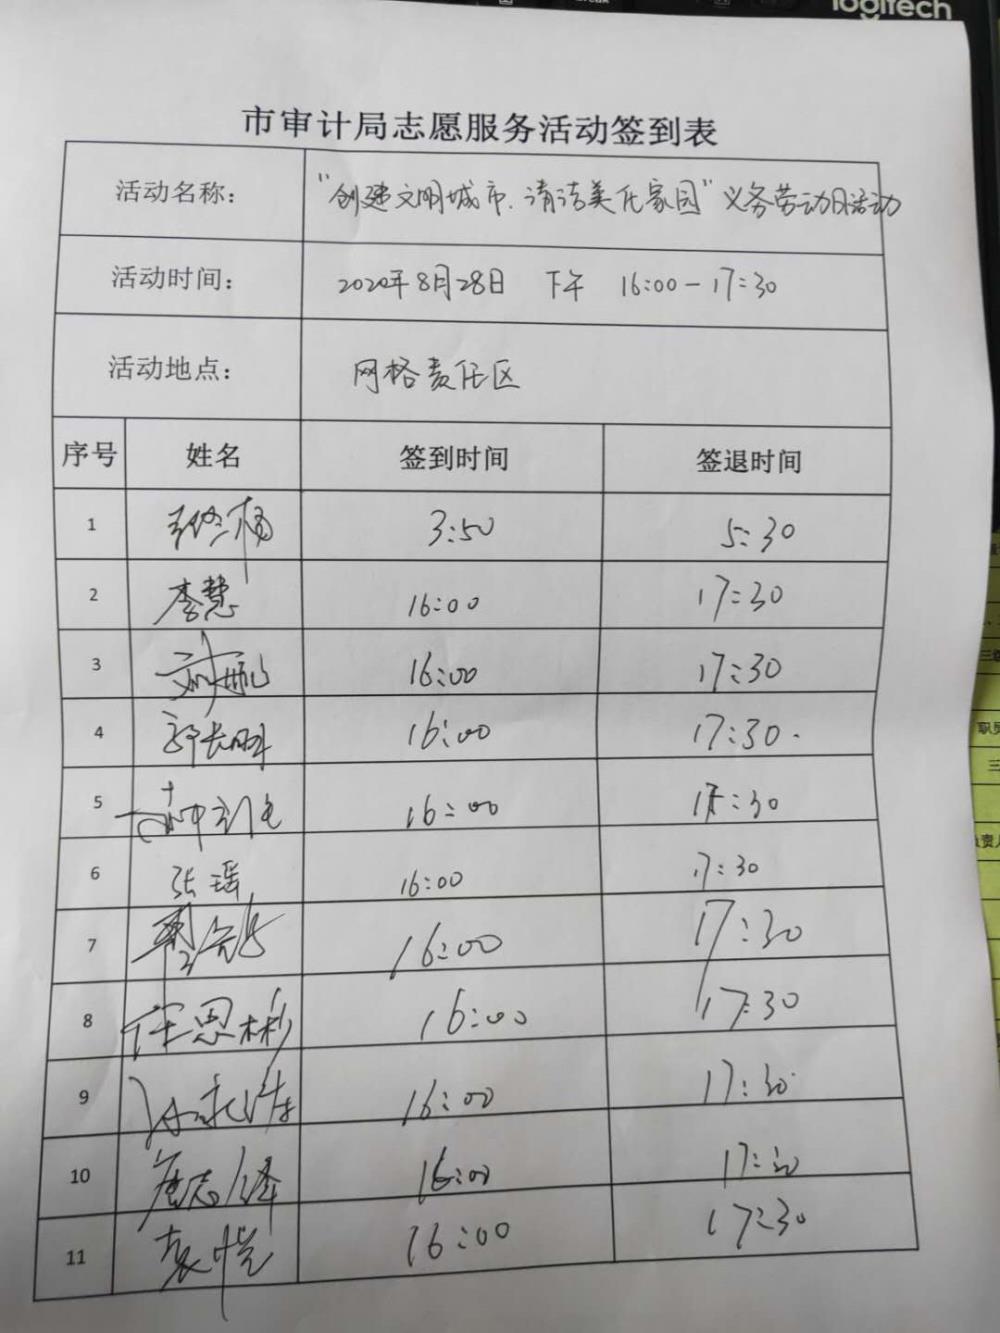 logitech
市审计局志愿服务活动签到表
活动名称： "创建文明城市、清洁美化家园"义务劳动日活动
活动时间： 2020年8月28日 下午 16:00-17:30
活动地点： 网格责任区
序号 姓名 签到时间 签退时间
1 3:50 5:30
2 李慧 16:00 17:30
3 16:00 17:30
4 16:00 17:30.
5 16:00 17:30
6 张瑶 16:00 17:30
7 16:00 17:30
8 任思彬 16:00 17:30
9 16:00 17:30
10 16:00 17:30
11 袁恺 16:00 17:30
三
职员
三
负责人